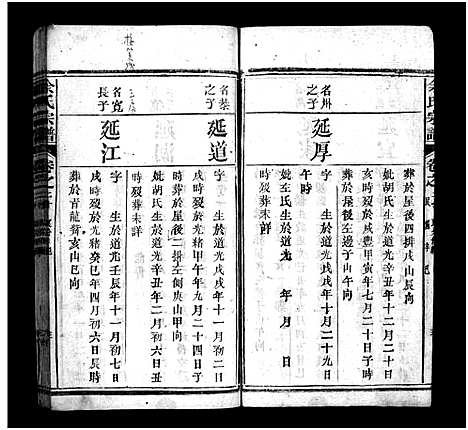 余氏宗譜
卷之
葬於屋後四排戌山辰向
妣胡氏生於道光
亥時歿於咸豐甲寅年七月二十日
葬於屋後左邊子山午向
名州之子
延厚
字 生於道光戊戌年十月二十九日
午時
妣左氏生於道光 年 月 日
時歿葬未詳
名榮之子
延道
字 生於道光戊戌年十一月初二日
戌時歿於光緒甲午年九月二十四日子
時葬於屋後二排左側庚山甲向
妣胡氏生於道光辛丑年二月初六日丑
時歿葬未詳
名寬長子
延江
字 生於道光壬辰年十一月初七日
戌時歿於光緒癸巳年四月初六日辰時
葬於青龍觜亥山巳向
余氏宗譜
卷之三